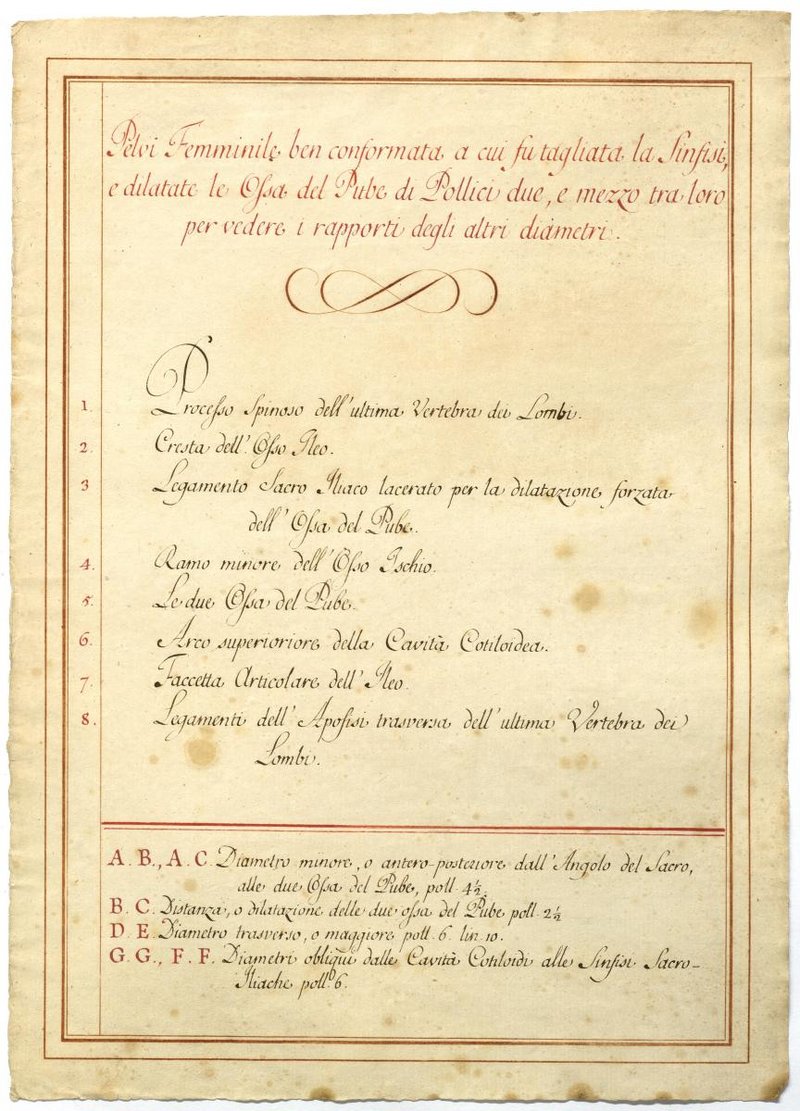 Pelvi Femminile ben conformata a cui fu tagliata la Sinfisi,
e dilatate le Ossa del Pube di Pollici due, e mezzo tra loro
per vedere i rapporti degli altri diametri.
1. Processo Spinoso dell'ultima Vertebra dei Lombi.
2. Cresta dell'Osso Ileo.
3 Legamento Sacro Iliaco lacerato per la dilatazione forzata
dell'Ossa del Pube.
4. Ramo minore dell'Osso Ischio.
5. Le due Ossa del Pube.
6. Arco superioriore della Cavità Cotiloidea.
7. Faccetta Articolare dell'Ileo.
8. Legamenti dell'Apofisi trasversa dell'ultima Vertebra dei
Lombi.
A. B., A. C. Diametro minore, o antero-posteriore dall'Angolo del Sacro,
alle due Ossa del Pube, poll. 4½.
B. C. Distanza, o dilatazione delle due ossa del Pube poll. 2½
D. E. Diametro trasverso, o maggiore poll. 6. lin. 10.
G. G., F. F. Diametri obliqui dalle Cavità Cotiloidi alle Sinfisi Sacro-
Iliache poll. 6.